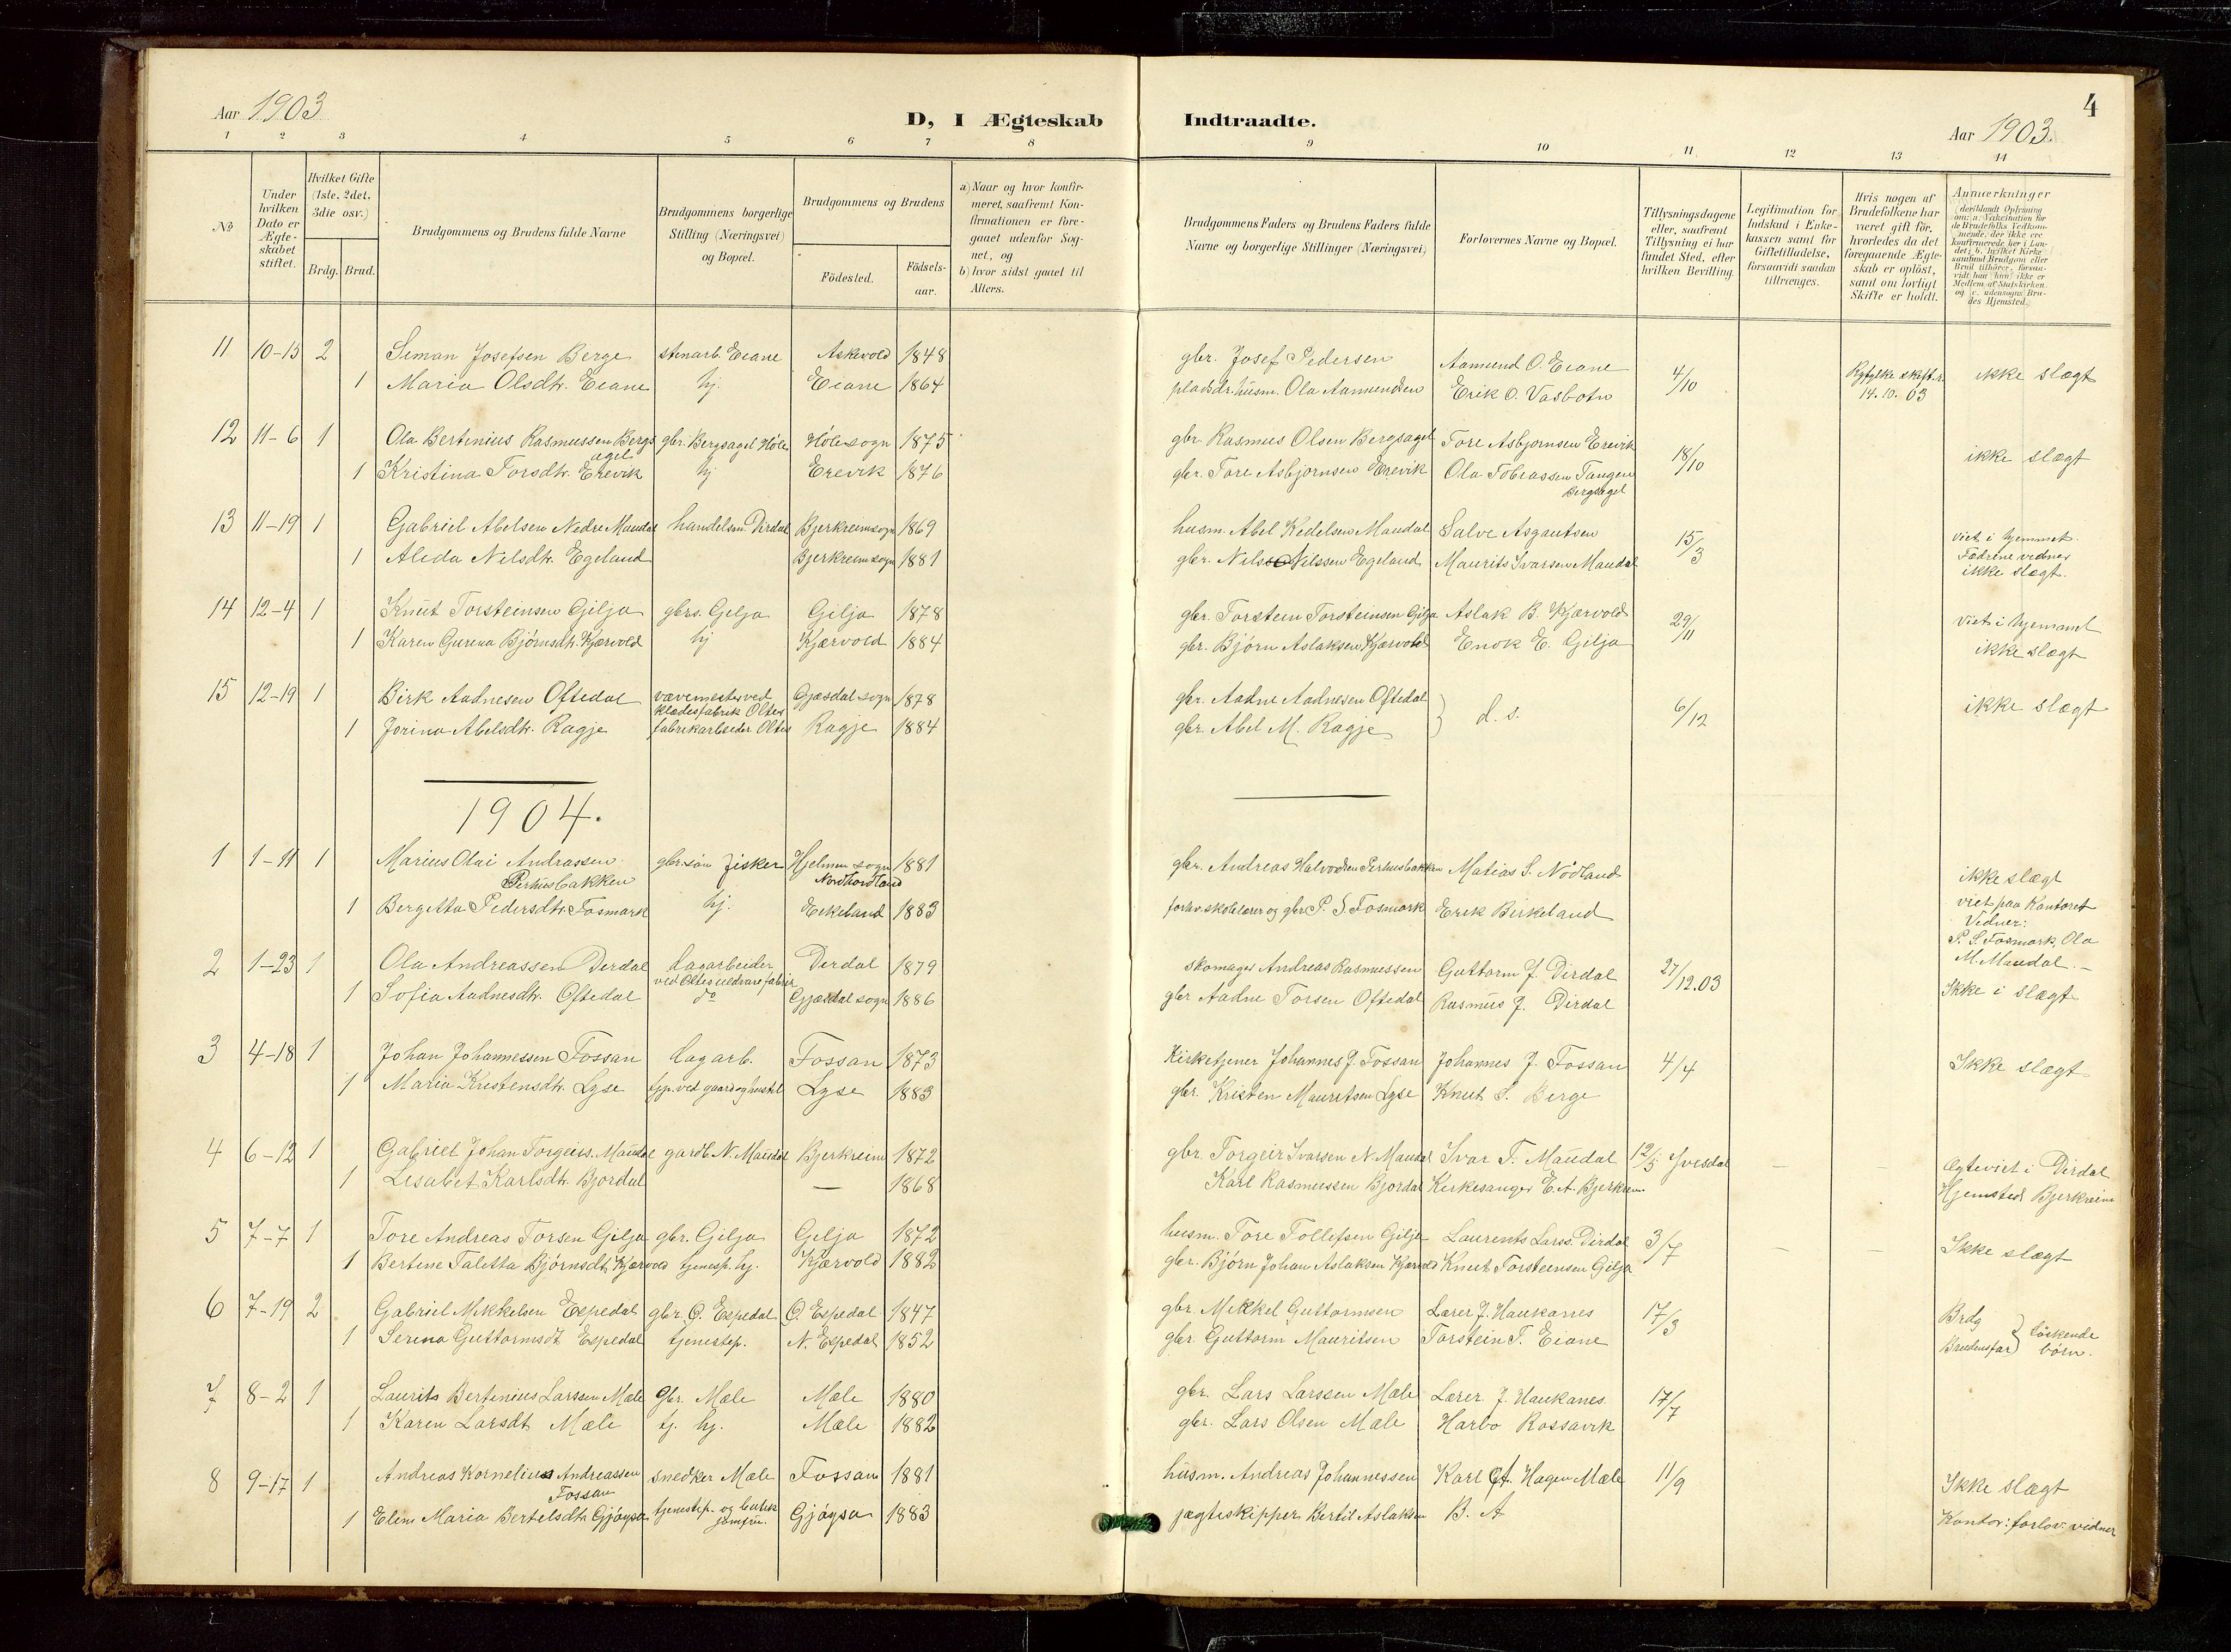 Aar 1903
D, I Ægteskab Indtraadte.
4
Aar 1903.
1 2 3 4 5 6 7 8 9 10 11 12 13 14
No
Under hvilken Dato er Ægteskabet stiftet.
Hvilket Gifte (1ste, 2det, 3die osv.)
Brdg. Brud.
Brudgommens og Brudens fulde Navne
Brudgommens borgerlige Stilling (Næringsvei) og Bopæl.
Brudgommens og Brudens
Födested. Födsels-aar.
a) Naar og hvor konfirmeret, saafremt Konfirmationen er foregaaet udenfor Sognet, og
b) hvor sidst gaaet til Alters.
Brudgommens Faders og Brudens Faders fulde Navne og borgerlige Stillinger (Næringsvei)
Forlovernes Navne og Bopæl.
Tillysningsdagene eller, saafremt Tillysning ei har fundet Sted, efter hvilken Bevilling.
Legitimation for Indskud i Enkekassen samt for Giftetilladelse, forsaavidt saadan tiltrænges.
Hvis nogen af Brudefolkene har været gift før, hvorledes da det foregaaende Ægteskab er oplöst, samt om lovligt Skifte er holdt.
Anmærkninger
11 10-15 2 Simon Josefsen Berge stenarb. Eiane Askevold 1848 gbr. Josef Pedersen Aamund O. Eiane 4/10 Ryfylke skift.r. 14.10.03 ikke slægt
1 Maria Olsdtr. Eiane hj. Eiane 1864 pladsdr. husm. Ola Aamundsen Erik O. Vasbotn
12 11-6 1 Ola Bertinius Rasmussen Bergsagel gbr. Bergsagel Höle Hölesogn 1875 gbr. Rasmus Olsen Bergsagel Tore Asbjørnsen Erevik 18/10 ikke slægt
1 Kristina Torsdtr. Erevik hj Erevik 1876 gbr. Tore Asbjornsen Erevik Ola Tobiassen Tangen Bergsagel
13 11-19 1 Gabriel Abelsen Nedre Maudal handelsm. Dirdal Bjerkreimsogn 1869 husm. Abel Kedelsen Maudal Salve Asgautsen 15/3 viet i hjemmet. Fædrene vedner ikke slægt.
1 Alida Nilsdtr. Egeland Bjerkreimsogn 1881 gbr. Nils Nilssen Egeland Maurits Ivarsen Maudal
14 12-4 1 Knut Torsteinsen Gilja gbrs. Gilja Gilja 1878 gbr. Torstein Torsteinsen Gilja Aslak B. Kjærvold 29/11 viet i hjemmet ikke slægt
1 Karen Gurina Björnsdtr. Kjærvold hj Kjærvold 1884 gbr. Björn Aslaksen Kjærvold Enok E. Gilja
15 12-19 1 Birk Aadnesen Oftedal vævemester ved klædesfabrik Oltes Gjæsdal sogn 1878 gbr. Aadne Aadnesen Oftedal d. s. 6/12 ikke slægt
1 Jorina Abelsdtr. Ragje fabrikarbeider Oltes Ragje 1884 gbr. Abel M. Ragje
1904.
1 1-11 1 Marius Olai Andrassen Perhusbakken gbr. søn fisker Hjelmen sogn Nordhordland 1881 gbr. Andreas Halvorsen Perhusbakken Matias S. Nödland ikke slægt
1 Bergitta Pedersdtr. Fosmark hj. Eikeland 1883 forhv. skolelærer og gbr. P. S Fosmark Erik Birkeland viet paa Kontoret Vidner: P. S. Fosmark, Ola M. Maudal.
2 1-23 1 Ola Andreassen Dirdal dagarbeider ved Oltes uldvarefabrik Dirdal 1879 skomager Andreas Rasmussen Guttorm J. Dirdal 27/12.03 Ikke i slægt
1 Sofia Aadnesdtr. Oftedal do Gjæsdal sogn 1886 gbr Aadne Torsen Oftedal Rasmus J. Dirdal
3 4-18 1 Johan Johannessen Fossan dagarb. Fossan 1873 Kirketjener Johannes J. Fossan Johannes J. Fossan 4/4 Ikke slægt
1 Maria Kristensdtr. Lyse 1883 Lyse gbr. Kristen Mauritsen Lyse Knut S. Berge
4 6-12 1 Gabriel Johan Torgeirs. Maudal gardb. N. Maudal Bjerkreim 1872 gbr. Torgeir Ivarsen N. Maudal Ivar T. Maudal 12/5 Ivesdal Ægteviet i Dirdal
1 Lisabet Karlsdtr. Bjordal — 1868 Karl Rasmussen Bjordal Kirkesanger E. A. Bjerkreim Hjemsted Bjerkreim
5 7-7 1 Tore Andreas Torsen Gilja gbr. Gilja Gilja 1872 husm. Tore Tollefsen Gilja Laurents Larss. Dirdal 3/7 Ikke slægt
1 Bertine Taletta Björnsdtr. Kjærvold tjenesp. hj. Kjærvold 1882 gbr. Björn Johan Aslaksen Kjærvold Knut Torsteinsen Gilja
6 7-19 2 Gabriel Mikkelsen Espedal gbr. Ö. Espedal Ö. Espedal 1847 gbr. Mikkel Guttormsen Lærer J. Haukanes 17/3 Brdg Brudensfar } söskende börn.
1 Serina Guttormsdt Espedal tjenestep. N. Espedal 1852 gbr. Guttorm Mauritsen Torstein T. Eiane
7 8-2 1 Laurits Bertinius Larssen Mæle Gbr. Mæle Mæle 1880 gbr. Lars Larssen Mæle Lærer. J. Haukanes 17/7
1 Karen Larsdt. Mæle tj. hj. Mæle 1882 gbr. Lars Olsen Mæle Harbo Rossavik
8 9-17 1 Andreas Kornelius Andreassen Fossan snedker Mæle Fossan 1881 husm. Andreas Johannessen Karl A. Hagen Mæle 11/9 Ikke slægt
1 Elin Maria Bertelsdtr Gjöysa tjenestep. og butikjomfru. Gjöysa 1883 jægteskipper Bertil Aslaksen B. A Kontor: forlov: vidner